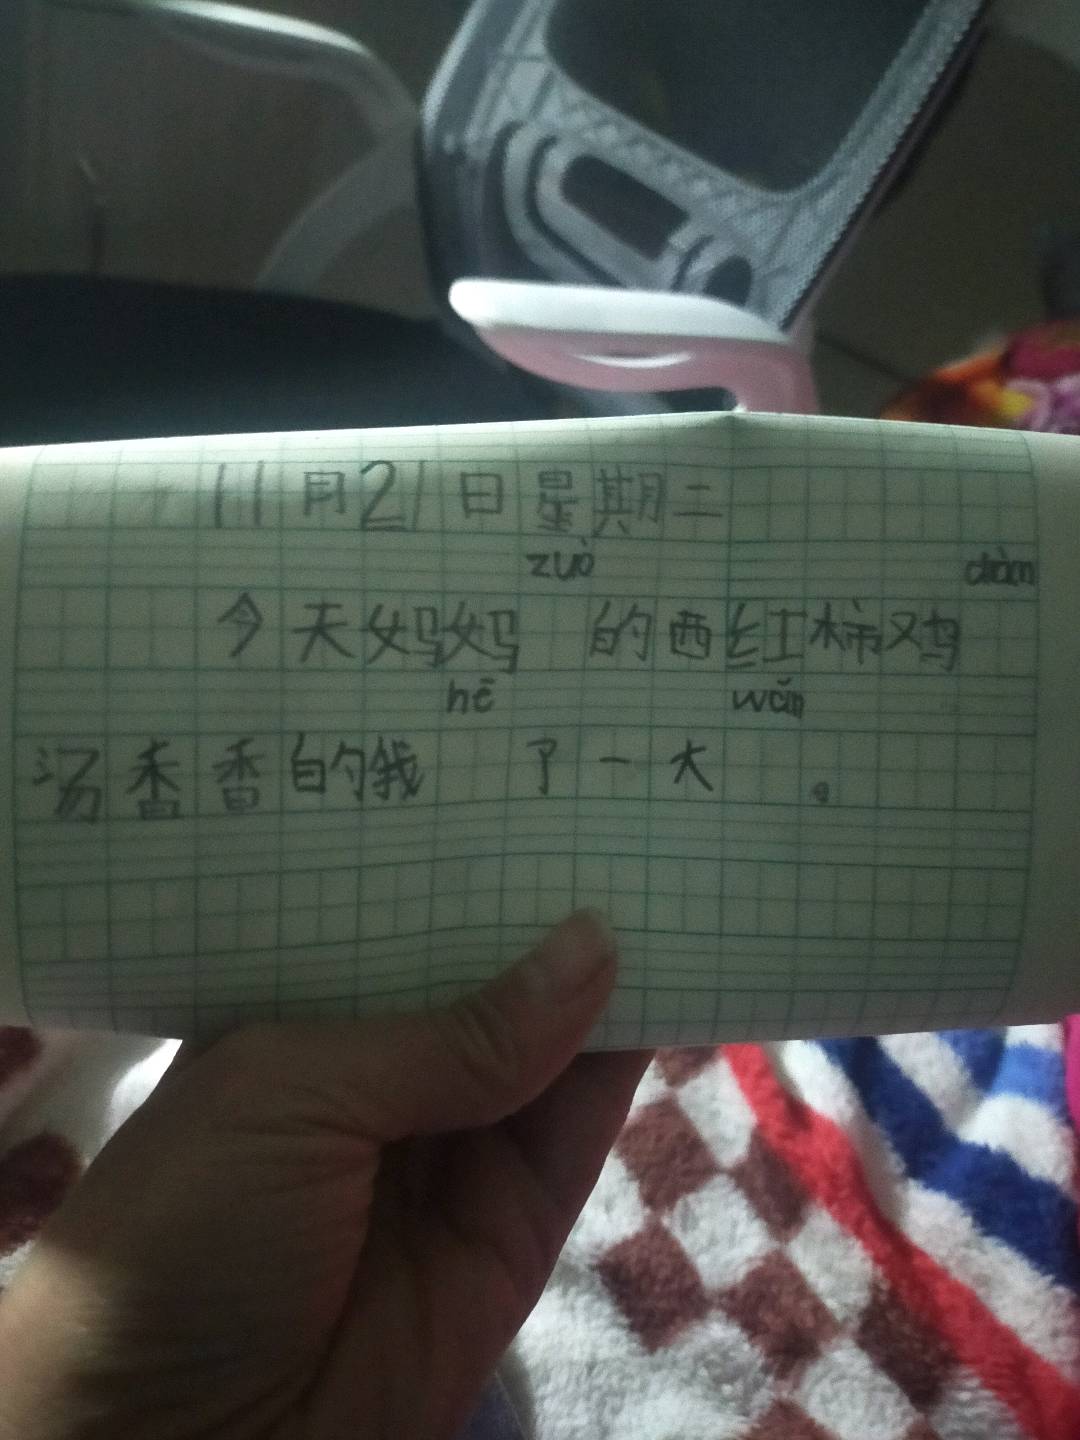 11月21日星期二
zuò dàn
今天妈妈 的西红柿鸡
hē wǎn
汤香香的我 了一大 。